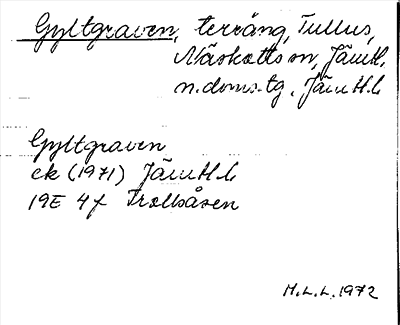 Gyltgraven, terräng, Tullus,
Näskotts sn, Jämtl.
n. doms.tg, Jämtl. l.
Gyltgraven
ek (1971) Jämtl. l.
19E 4f Trollsåsen
H.L.L. 1972